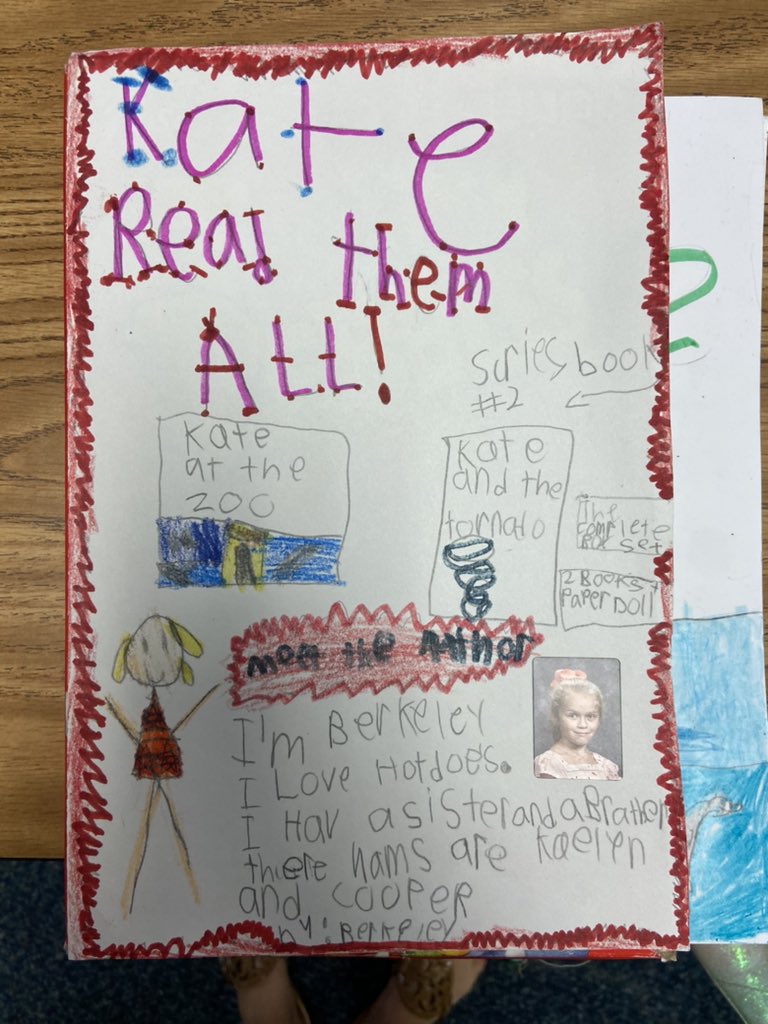 Kate
Read them
ALL!
series book
#2
Kate
at the
zoo
Kate
and the
tornato
The
complete
Box set
2 Books +
Paper Doll
meet the Aathor
I'm Berkeley
I Love Hotdoes.
I Hav a sister and a Brather
theere nams are Kaelyn
and cooper
by: Berkeley
2